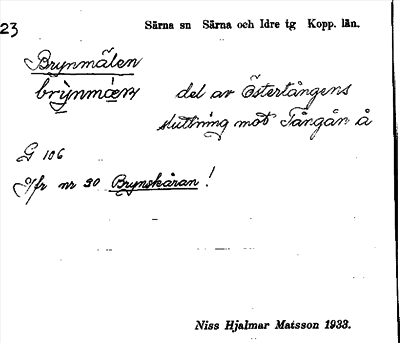 23
Särna sn Särna och Idre tg Kopp. län.
Brynmålen
brynmǻɛn, del av Österlångens
sluttning mot Tångån å
G 106
Jfr nr 30 Brynskåran!
Niss Hjalmar Matsson 1933.